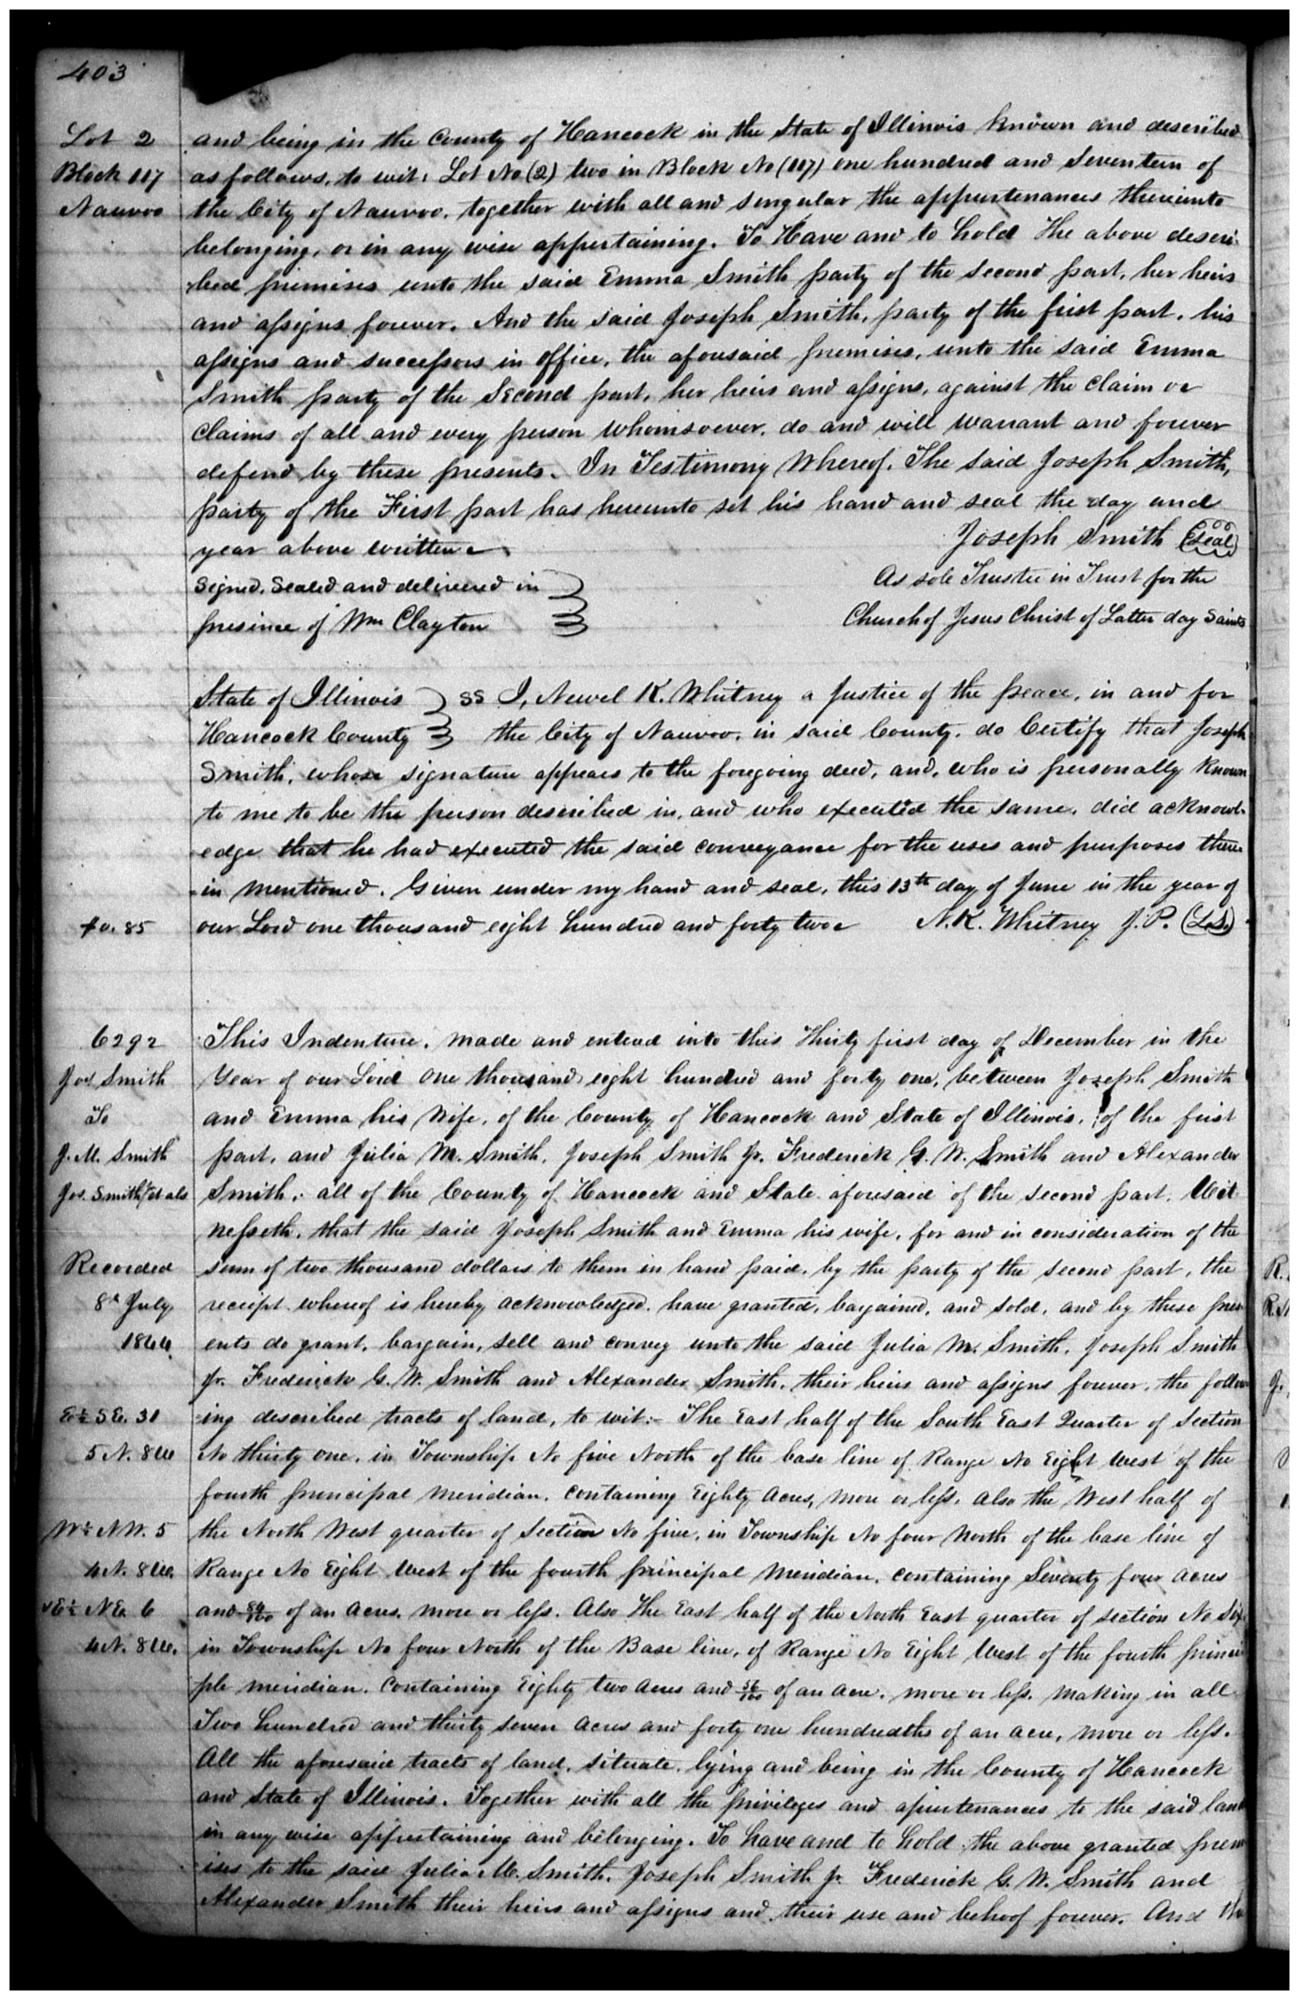 403
Lot 2 and being in the County of Hancock in the State of Illinois known and described
Block 117 as follows, to wit: Lot No (2) two in Block No (117) one hundred and Seventeen of
Nauvoo the City of Nauvoo, together with all and singular the appurtenances thereunto
belonging, or in any wise appertaining. To Have and to hold the above descri-
bed premises unto the said Emma Smith party of the second part, her heirs
and assigns forever. And the said Joseph Smith, party of the first part, his
assigns and successors in office, the aforesaid premises, unto the said Emma
Smith party of the Second part, her heirs and assigns, against the claim or
Claims of all and every person whomsoever, do and will warrant and forever
defend by these presents. In Testimony Whereof, The said Joseph Smith,
party of the First part has hereunto set his hand and seal the day and
year above written. Joseph Smith (Seal)
Signed, Sealed and delivered in As sole Trustee in Trust for the
presence of Wm Clayton Church of Jesus Christ of Latter day Saints
State of Illinois } SS I, Newel K. Whitney a Justice of the peace, in and for
Hancock County } the City of Nauvoo, in said County, do Certify that Joseph
Smith, whose signature appears to the foregoing deed, and, who is personally known
to me to be the person described in, and who executed the same, did acknowl-
edge that he had executed the said conveyance for the uses and purposes there
-in mentioned. Given under my hand and seal, this 13th day of June in the year of
fo. 85 our Lord one thousand eight hundred and forty two N. K. Whitney J. P. (L.S.)
6292 This Indenture, made and entered into this Thirty first day of December in the
Jos Smith Year of our Lord one thousand eight hundred and forty one, between Joseph Smith
To and Emma his Wife, of the County of Hancock and State of Illinois, of the first
J. M. Smith part, and Julia M. Smith, Joseph Smith Jr. Frederick G. W. Smith and Alexander
Jos. Smith Jr et als Smith, all of the County of Hancock and State aforesaid of the second part. Wit
nesseth, that the said Joseph Smith and Emma his wife, for and in consideration of the
Recorded sum of two thousand dollars to them in hand paid, by the party of the second part, the
8th July receipt whereof is hereby acknowledged, have granted, bargained, and sold, and by these pres
1844 ents do grant, bargain, sell and convey unto the said Julia M. Smith, Joseph Smith
Jr. Frederick G. W. Smith and Alexander Smith, their heirs and assigns forever, the follow
E½ SE. 31 -ing described tracts of land, to wit:- The East half of the South East Quarter of Section
5 N. 8 W No thirty one, in Township No five North of the base line of Range No Eight West of the
fourth principal Meridian, containing Eighty Acres, more or less, Also the West half of
W½ NW. 5 the North West quarter of Section No five, in Township No four North of the base line of
4 N. 8 W. Range No Eight West of the fourth principal Meridian, containing Seventy four acres
E½ NE. 6 and 84/100 of an Acres, more or less. Also The East half of the North East quarter of section No Six
4 N. 8 W. in Township No four North of the Base line, of Range No Eight West of the fourth princi
ple meridian. Containing Eighty two acres and 56/100 of an acre, more or less, making in all
Two hundred and thirty seven acres and forty one hundredths of an acre, more or less.
All the aforesaid tracts of land, situate, lying and being in the County of Hancock
and State of Illinois. Together with all the privileges and apurtenances to the said land
in any wise appertaining and belonging. To have and to hold the above granted prem
ises to the said Julia M. Smith, Joseph Smith Jr. Frederick G. W. Smith and
Alexander Smith their heirs and assigns and their use and behoof forever. And the